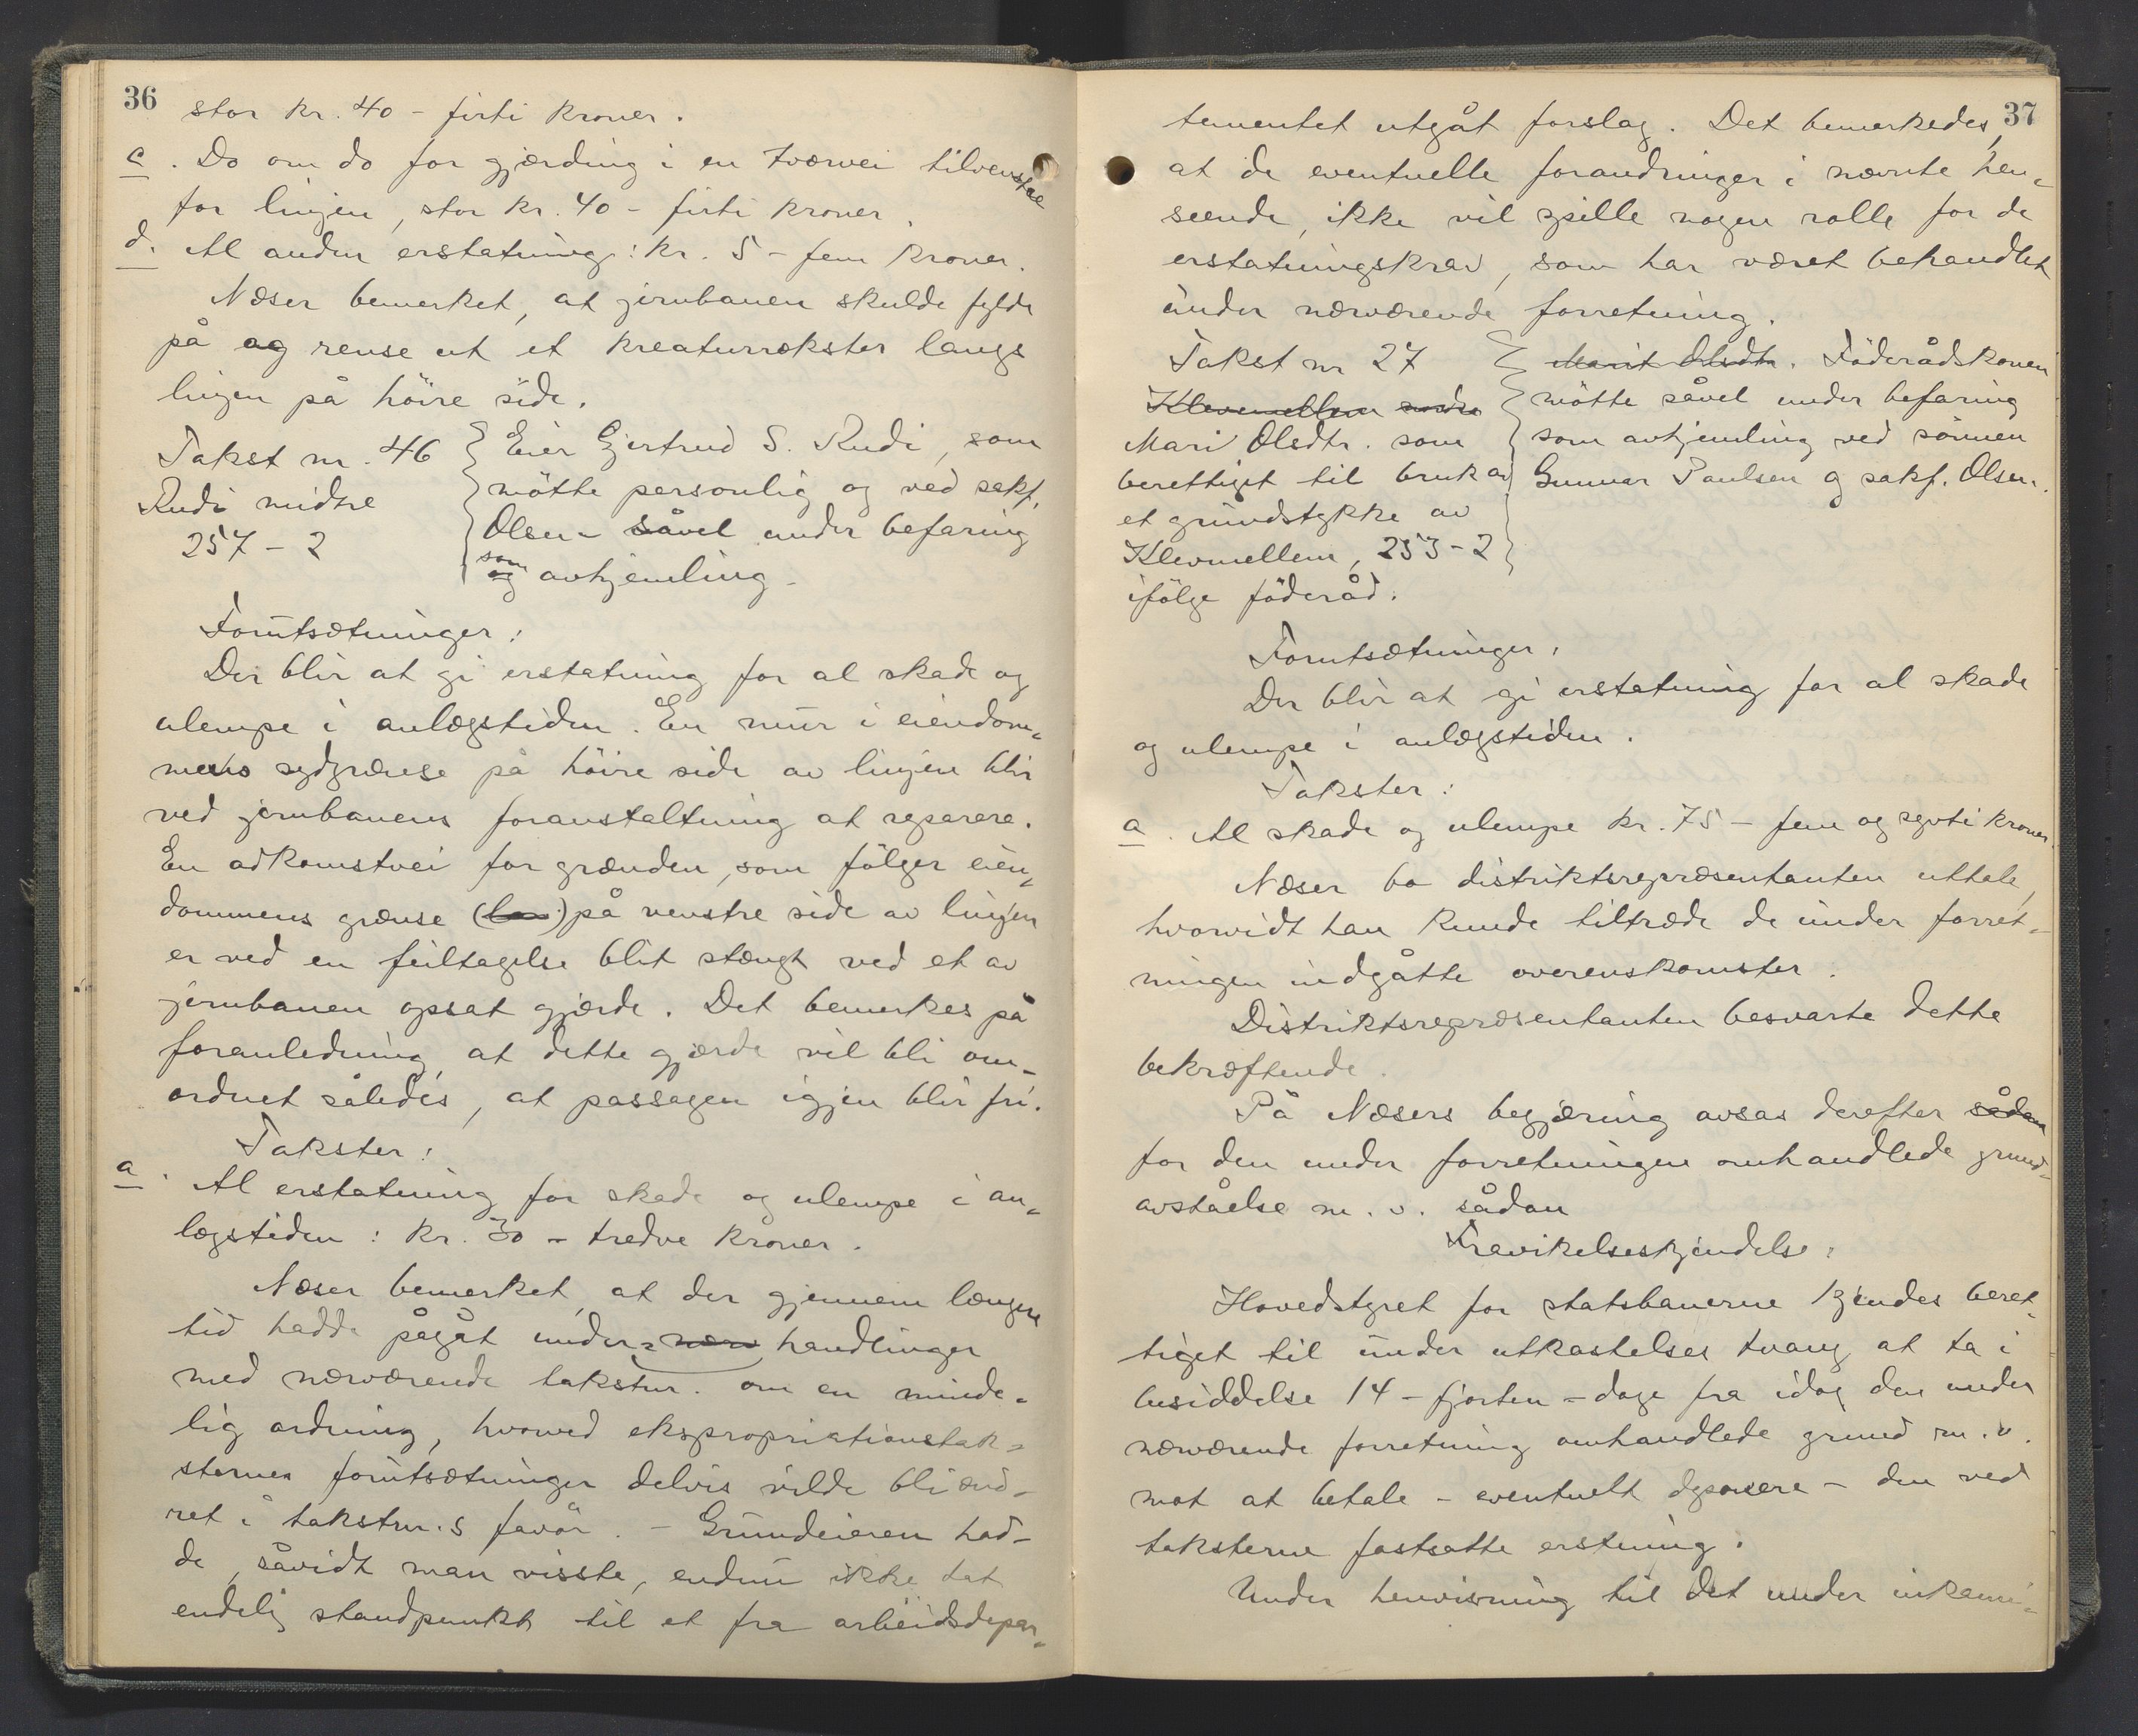 36
stor kr. 40 - firti kroner.
c. Do om do for gjærding i en tværvei tilvenstre
for linjen, stor kr. 40 - firti kroner.
d. Al anden erstatning: kr. 5 - fem kroner.
Næser bemerket, at jernbanen skulde fylde
på og rense ut et kreaturrækster langs
linjen på höire side.
Takst nr. 46
Rudi midtre
257 - 2
Eier Gjertrud S. Rudi, som
mötte personlig og ved sakf.
Olsen - såvel under befaring
som og avhjemling -
Forutsætninger:
Der blir at gi erstatning for al skade og
ulempe i anlægstiden. En mur i eiendom-
mens sydgrænse på höire side av linjen blir
ved jernbanens foranstaltning at reparere.
En adkomstvei for grænden, som fölger eien-
dommens grænse på venstre side av linjen
er ved en feiltagelse blit stængt ved et av
jernbanen opsat gjærde. Det bemerkes på
foranledning, at dette gjærde vil bli om-
ordnet således, at passagen igjen blir fri.
Takster:
a. Al erstatning for skade og ulempe i an-
lægstiden: kr. 30 - tredve kroner.
Næser bemerket, at der gjennem længere
tid hadde pågåt under-handlinger
med nærværende takstnr. om en minde-
lig ordning, hvorved ekspropriationstak-
sternes forutsætninger delvis vilde bli ænd-
ret i takstnr.s favör. - Grundeieren had-
de, såvidt man visste, endnu ikke tat
endelig standpunkt til et fra arbeidsdepar-
37
tementet utgåt forslag. Det bemerkedes,
at de eventuelle forandringer i nævnte hen-
seende, ikke vil spille nogen rolle for de
erstatningskrav, som har været behandlet
under nærværende forretning.
Takst nr 27
Klevmellem nordre
Mari Olsdtr. som
berettiget til bruk av
et grundstykke av
Klevmellem, 253-2
ifölge föderåd.
Marit Olsdtr. Föderådskonen
mötte såvel under befaring
som avhjemling ved sönnen
Gunnar Paulsen og sakf. Olsen.
Forutsætninger:
Der blir at gi erstatning for al skade
og ulempe i anlægstiden.
Takster:
a. Al skade og ulempe kr. 75 - fem og sytti kroner.
Næser ba distriktsrepræsentanten uttale,
hvorvidt han kunde tiltræde de under forret-
ningen indgåtte overenskomster.
Distriktsrepræsentanten besvarte dette
bekræftende.
På Næsers begjæring avsas derefter sådan
for den under forretningen omhandlede grund-
avståelse m. v. sådan
Fravikelseskjendelse:
Hovedstyret for statsbanerne kjendes beret-
tiget til under utkastelses tvang at ta i
besiddelse 14 - fjorten - dage fra idag den under
nærværende forretning omhandlede grund m. v.
mot at betale - eventuelt deponere - den ved
taksterne fastsatte erstning.
Under henvisning til det under inkami-